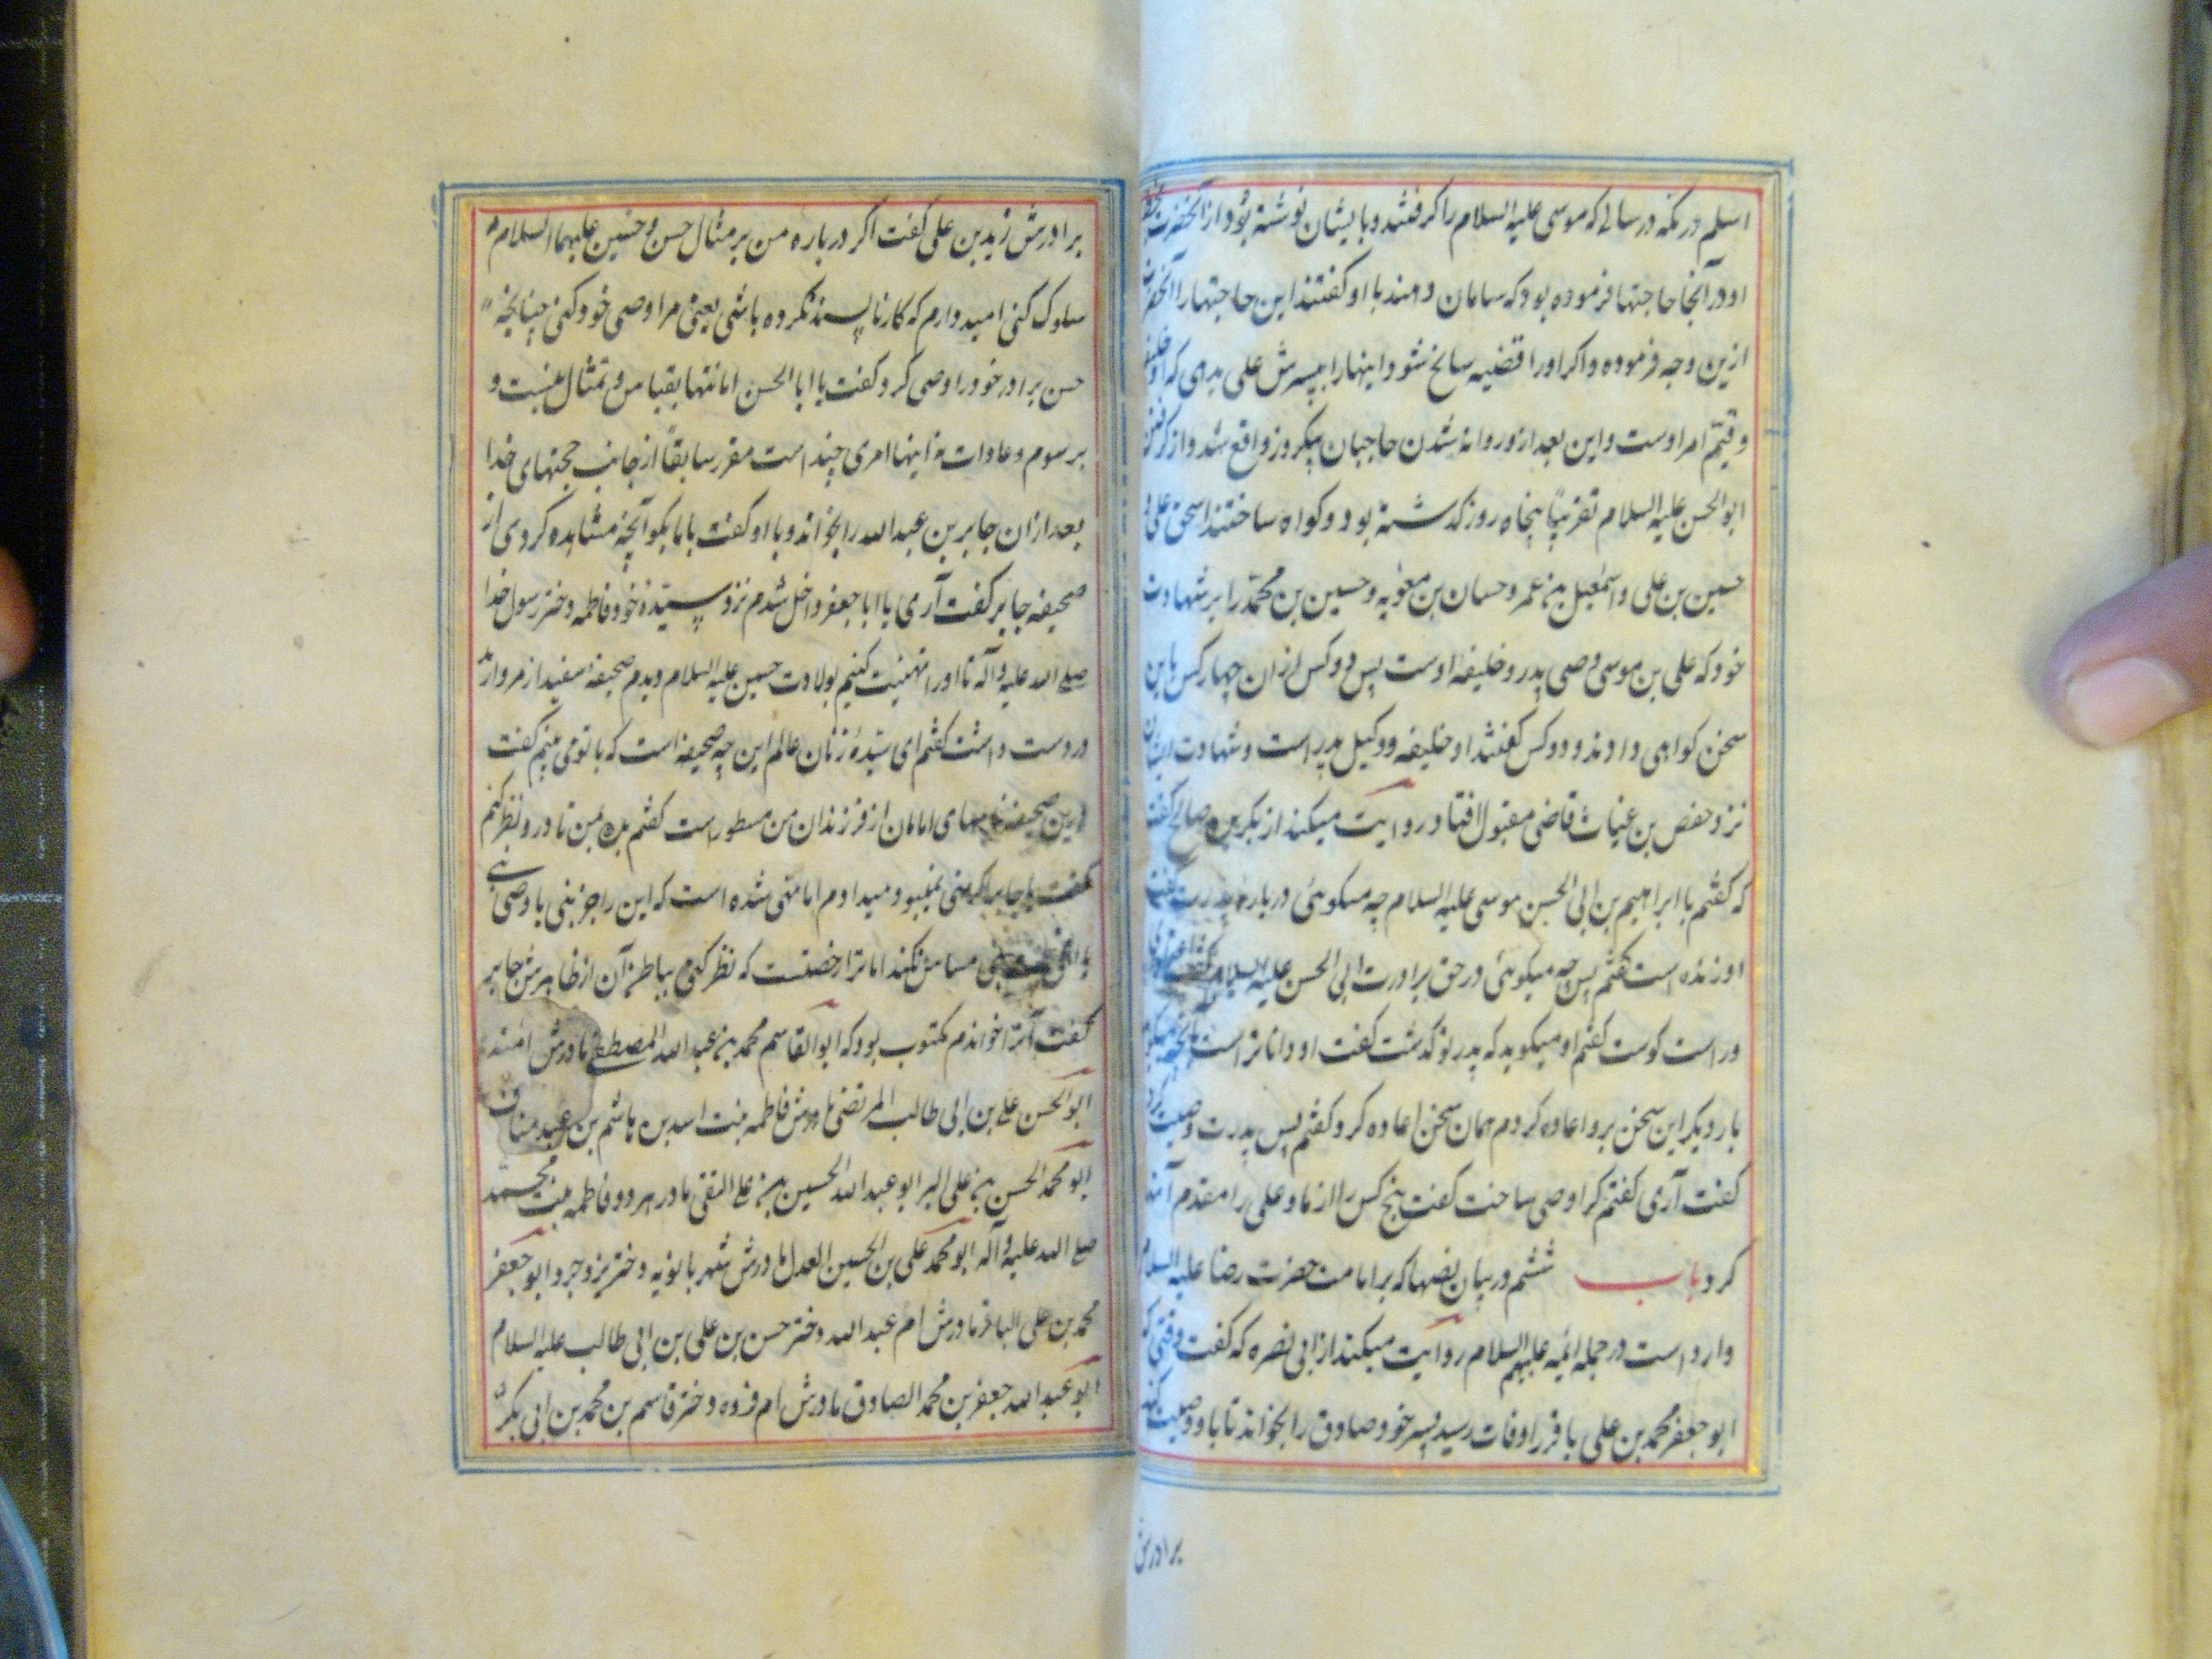 اسلم در مکه در سالی که موسی علیه السلام را گرفتند و بایشان نوشته بود و از آنحضرت
او در آنجا حاجتها فرموده بود که سامان دهند با او گفتند این حاجتها را آنحضرت
ازین وجه فرموده و اگر او را قضیه سانح شود اینها را بپسرش علی بدهی که او خلیفه
و قیّم امر اوست و این بعد از روانه شدن حاجیان بیکروز واقع شد و از گرفتن
ابو الحسن علیه السلام تقریباً پنجاه روز گذشته بود و گواه ساختند اسحق علی
حسین بن علی و اسمعیل بن عمر و حسان بن معویه و حسین بن محمّد را بر شهادت
خود که علی بن موسی وصی پدر و خلیفه اوست پس دو کس از ان چهار کس باین
سخن گواهی دادند و دو کس گفتند او خلیفه و وکیل پدر است و شهادت ایشان
نزد حفص بن غیاث قاضی مقبول افتاد روایت میکند از بکر بن صالح گفت
که گفتم با ابراهیم بن ابی الحسن موسی علیه السلام چه میگوئی درباره پدرت گفت
او زنده است گفتم پس چه میگوئی در حق برادرت ابی الحسن علیه السلام گفت
و راست گوست گفتم او میگوید که پدر تو گذشت گفت او داناتر است بانچه میگوید
بار دیگر این سخن برو اعاده کردم همان سخن اعاده کرد گفتم پس پدرت وصیت کرد
گفت آری گفتم کرا وصی ساخت گفت پنج کس را از ما و علی را مقدم
کرد باب ششم در بیان نصها که بر امامت حضرت رضا علیه السلام
وارد است در جمله ائمه علیهم السلام روایت میکند از ابی نضره که گفت وقتی که
ابو جعفر محمد بن علی باقر را وفات رسید پسر خود صادق را بخواند تا با او وصیت کند
برادرش
برادرش زید بن علی گفت اگر درباره من بر مثال حسن و حسین علیهما السلام
سلوک کنی امیدوارم که کار ناپسند نکرده باشی یعنی مرا وصی خود کنی چنانچه
حسن برادر خود را وصی کرد گفت یا ابا الحسن امانتها بقیاس و تمثال نیست و
برسوم و عادات نه اینها امری چند است مقرر سابقاً از جانب حجتهای خدا
بعد از ان جابر بن عبد الله را بخواند و با او گفت با ما بگو آنچه مشاهده کردی از
صحیفه جابر گفت آری یا ابا جعفر داخل شدم نزد سیّدة خود فاطمه دختر رسول خدا
صلی الله علیه و آله تا او را تهنیت کنیم بولادت حسین علیه السلام دیدم صحیفه سفید از مروارید
در دست داشت گفتم ای سیّدة زنان عالم این چه صحیفه است که با تو می بینم گفت
درین صحیفه نامهای امامان از فرزندان من مسطور است گفتم بده بمن تا درو نظر کنم
گفت یا جابر اگر نهی نمیبود میدادم اما نهی شده است که این را جز نبی یا وصی نبی
یا اهل بیت نبی مساس نکند اما ترا رخصتست که نظر کنی بباطن آن از ظاهرش جابر
گفت آنرا خواندم مکتوب بود که ابو القاسم محمد بن عبد الله المصطفی مادرش آمنه
ابو الحسن علی بن ابی طالب المرتضی مادرش فاطمه بنت اسد بن هاشم بن عبد مناف
ابو محمد الحسن بن علی البر ابو عبد الله الحسین بن علی التقی مادر هر دو فاطمه بنت محمد
صلی الله علیه و آله ابو محمد علی بن الحسین العدل مادرش شهربانویه دختر یزدجرد ابو جعفر
محمد بن علی الباقر مادرش ام عبد الله دختر حسن بن علی بن ابی طالب علیه السلام
ابو عبد الله جعفر بن محمد الصادق مادرش ام فروه دختر قاسم بن محمد بن ابی بکر